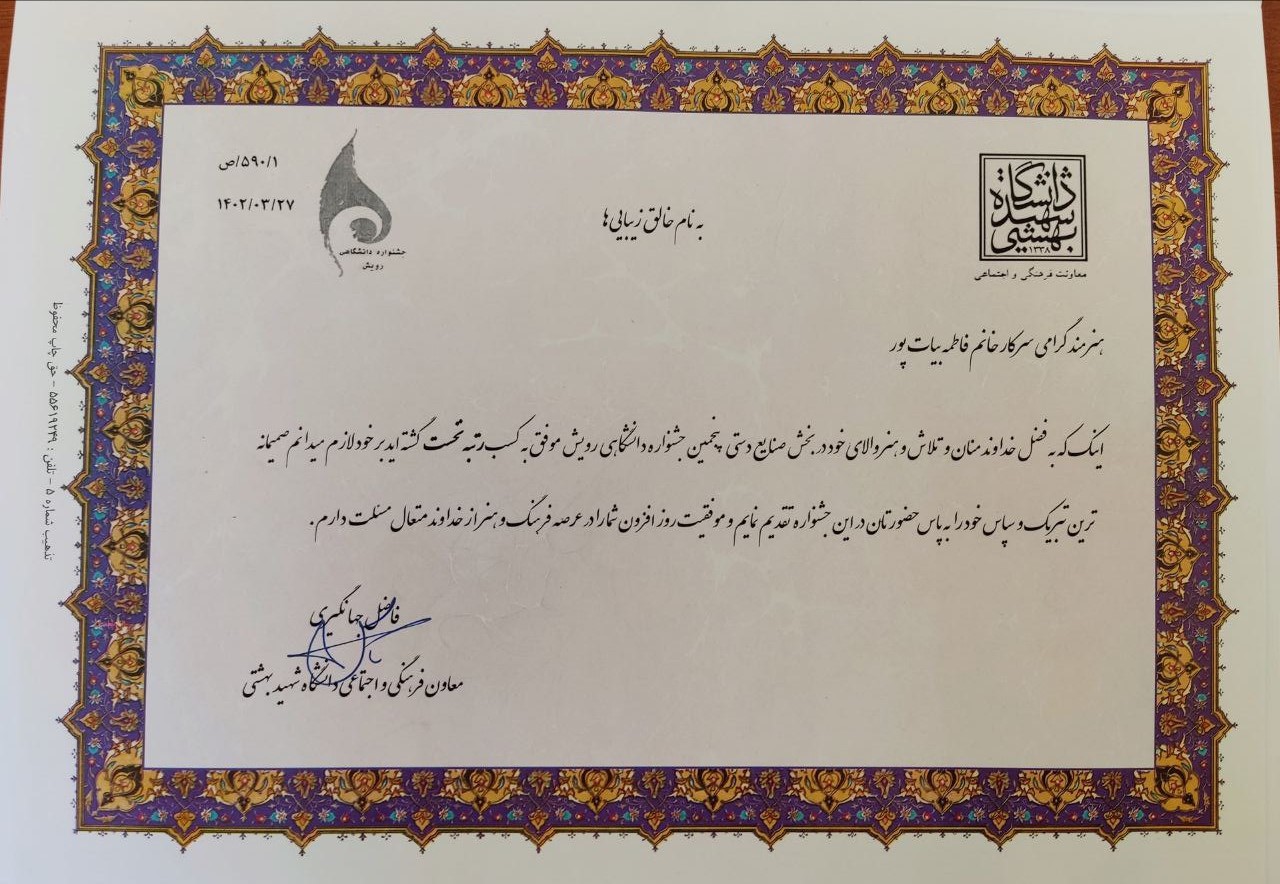 دانشگاه
شهید
بهشتی
۱۳۳۸
معاونت فرهنگی و اجتماعی
به نام خالق زیبایی ها
جشنواره دانشگاهی
رویش
۵۹۰/۱/ص
۱۴۰۲/۰۳/۲۷
هنرمند گرامی سرکار خانم فاطمه بیات پور
اینک که به فضل خداوند منان و تلاش و هنر والای خود در بخش صنایع دستی پنجمین جشنواره دانشگاهی رویش موفق به کسب رتبه نخست گشته اید بر خود لازم میدانم صمیمانه
ترین تبریک و سپاس خود را به پاس حضورتان در این جشنواره تقدیم نمایم و موفقیت روز افزون شما را در عرصه فرهنگ و هنر از خداوند متعال مسئلت دارم.
فاضل جهانگیری
معاون فرهنگی و اجتماعی دانشگاه شهید بهشتی
تذهیب شماره ۵ - تلفن : ۵۵۶۱۹۲۴۹ - حق چاپ محفوظ